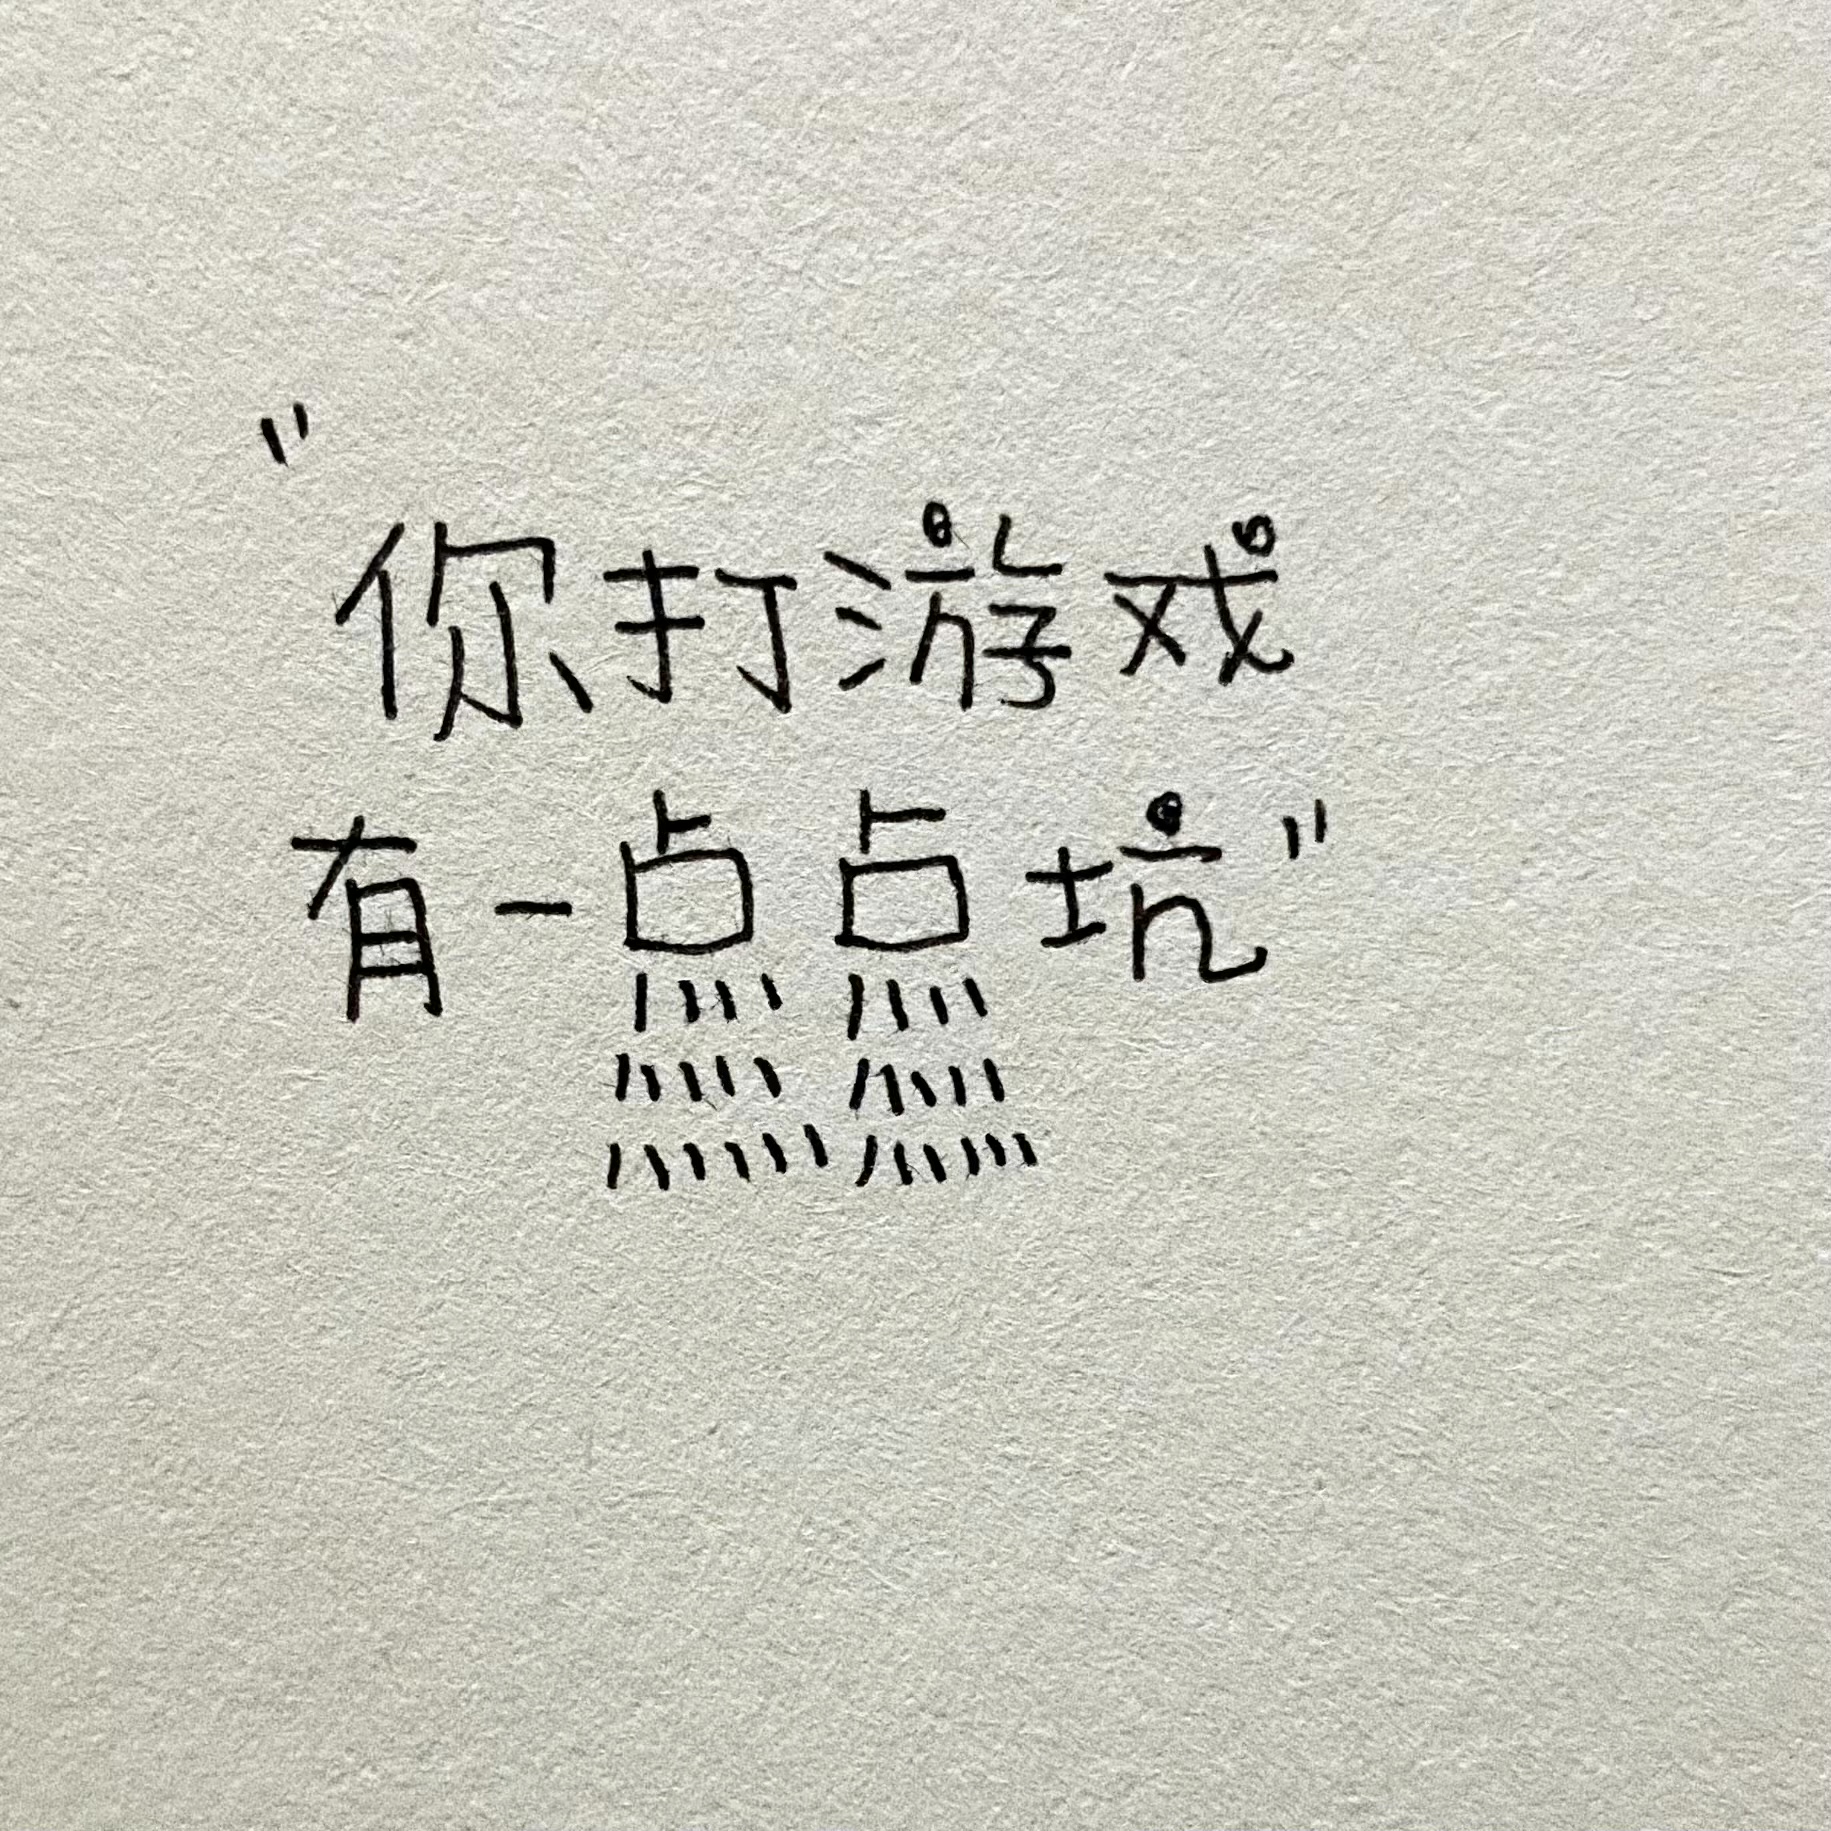 "你打游戏
有一点点坑"